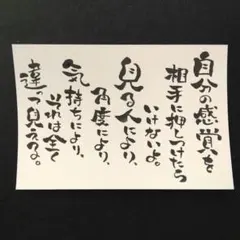 自分の感賞を
相手に押しつけたら
いけないよ。
見る人により、
角度により、
気持ちにより、
それは全て
違って見えるよ。